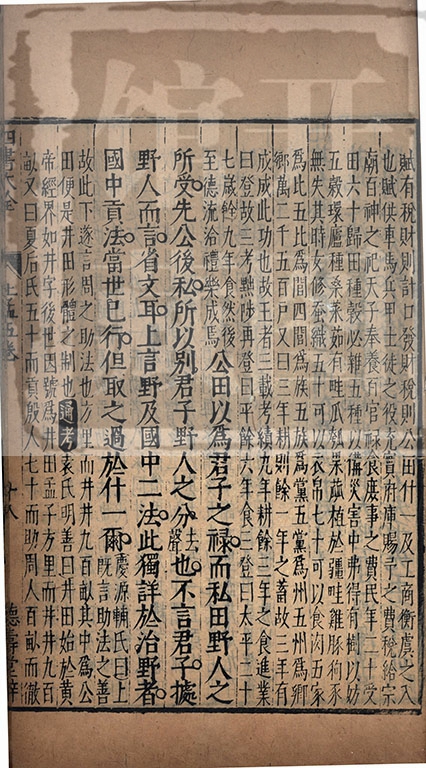 賦有稅財則計口發財稅則公田什一及工商衡虞之入
也賦供車馬兵甲士徒之役充實府庫賜予之費稅給宗
廟百神之祀天子奉養百官祿食庶事之費民年二十受
田六十歸田種穀必雜五種以備災害中弗得有樹以妨
五穀環廬種桑菜茹有畦瓜瓠果蓏植於疆畦雞豚狗豕
無失其時女修蠶織五十可以衣帛七十可以食肉五家
為比五比為閭四閭為族五族為黨五黨為州五州為鄉
鄉萬二千五百戶又曰三年耕則餘一年之蓄故三年有
成成此功也故王者三載考績九年耕餘三年之食進業
曰登故三考黜陟再登曰平餘六年食三登曰太平二十
七歲餘九年食然後
至德流洽禮樂成焉
公田以為君子之祿而私田野人之
所受先公後私所以別君子野人之分去聲也不言君子據
野人而言省文耳上言野及國中二法此獨詳於治野者
國中貢法當世已行但取之過於什一爾
慶源輔氏曰上
既言助法之善
故此下遂言周之助法也方里而井井九百畝其中為公
田便是井田形體之制也通考袁氏明善曰井田始於黃
帝經界如井字後世因號為井田孟子方里而井井九百
畝又曰夏后氏五十而貢殷人七十而助周人百畝而徹
四書大全
上孟五卷
十八
德壽堂梓